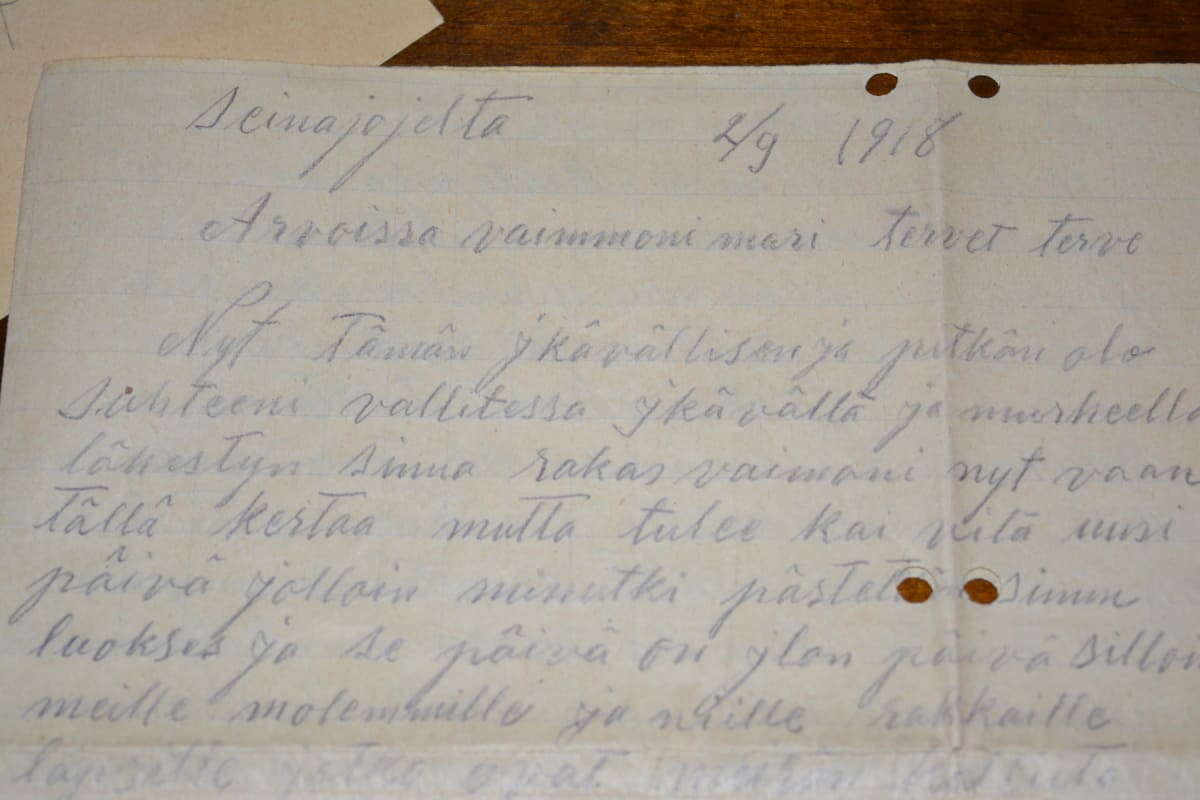 Seinajojelta 2/9 1918
Arvoissa vaimmoni mari tervet terve
Nyt tämän ykävällisen ja pitkän olo
suhteeni vallitessa ykävällä ja murheella
lähestyn sinua rakas vaimoni nyt vaan
tällä kertaa mutta tulee kai vilä uusi
päivä jolloin minutki pästetään sinun
luokses ja se päivä on ylon päivä silloin
meille molemmille ja niille rakkaille
lapsille jotka ovat